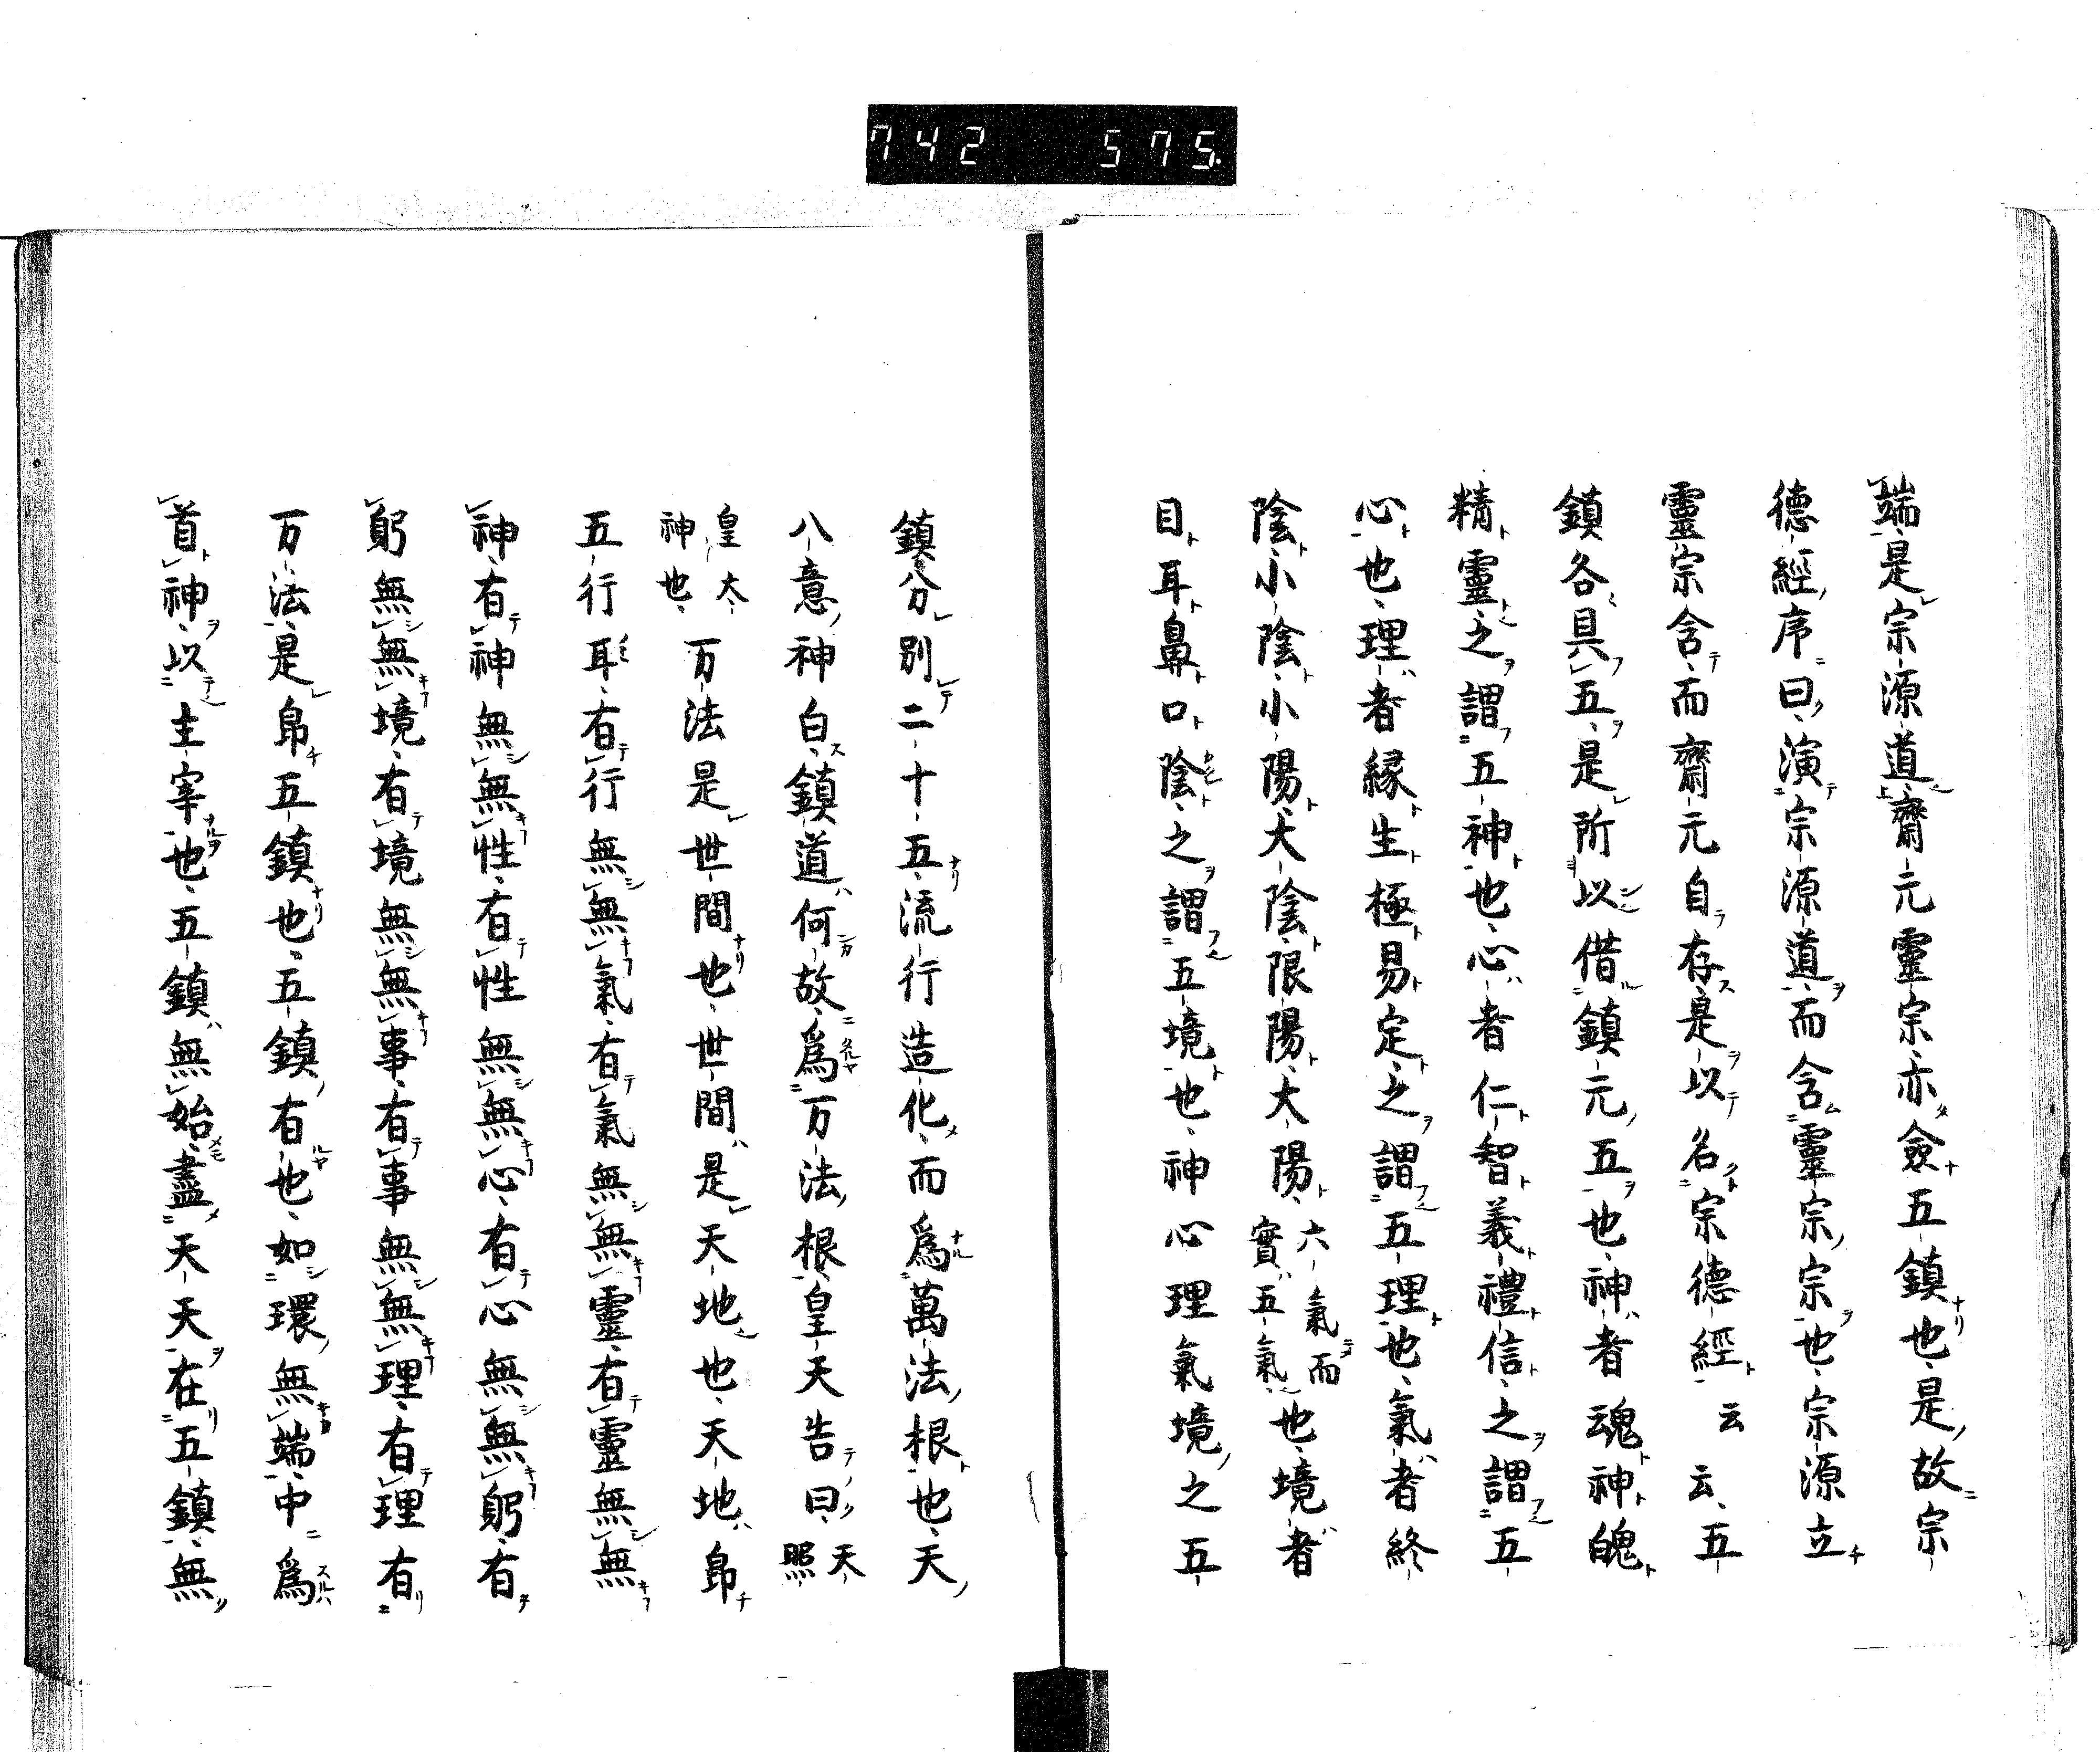 742 575
端是宗源道齋元靈宗亦僉五鎮也是故宗
德經序曰演宗源道而含靈宗宗也宗源立
靈宗含而齋元自存是以名宗德經云云五
鎮各具五是所以借鎮元五也神者魂神魄
精靈之謂五神也心者仁智義禮信之謂五
心也理者緣生極易定之謂五理也氣者終
陰小陰小陽大陰限陽大陽六氣而實五氣也境者
目耳鼻口陰之謂五境也神心理氣境之五
鎮分別二十五流行造化而爲萬法根也天
八意神白鎮道何故爲万法根皇天告曰天照
皇大神也万法是世間也世間是天地也天地帰
五行耳有行無無氣有氣無無靈有靈無無
神有神無無性有性無無心有心無無躬有
躬無無境有境無無事有事無無理有理有
万法是帰五鎮也五鎮有也如環無端中爲
首神以主宰也五鎮無始盡天天在五鎮無